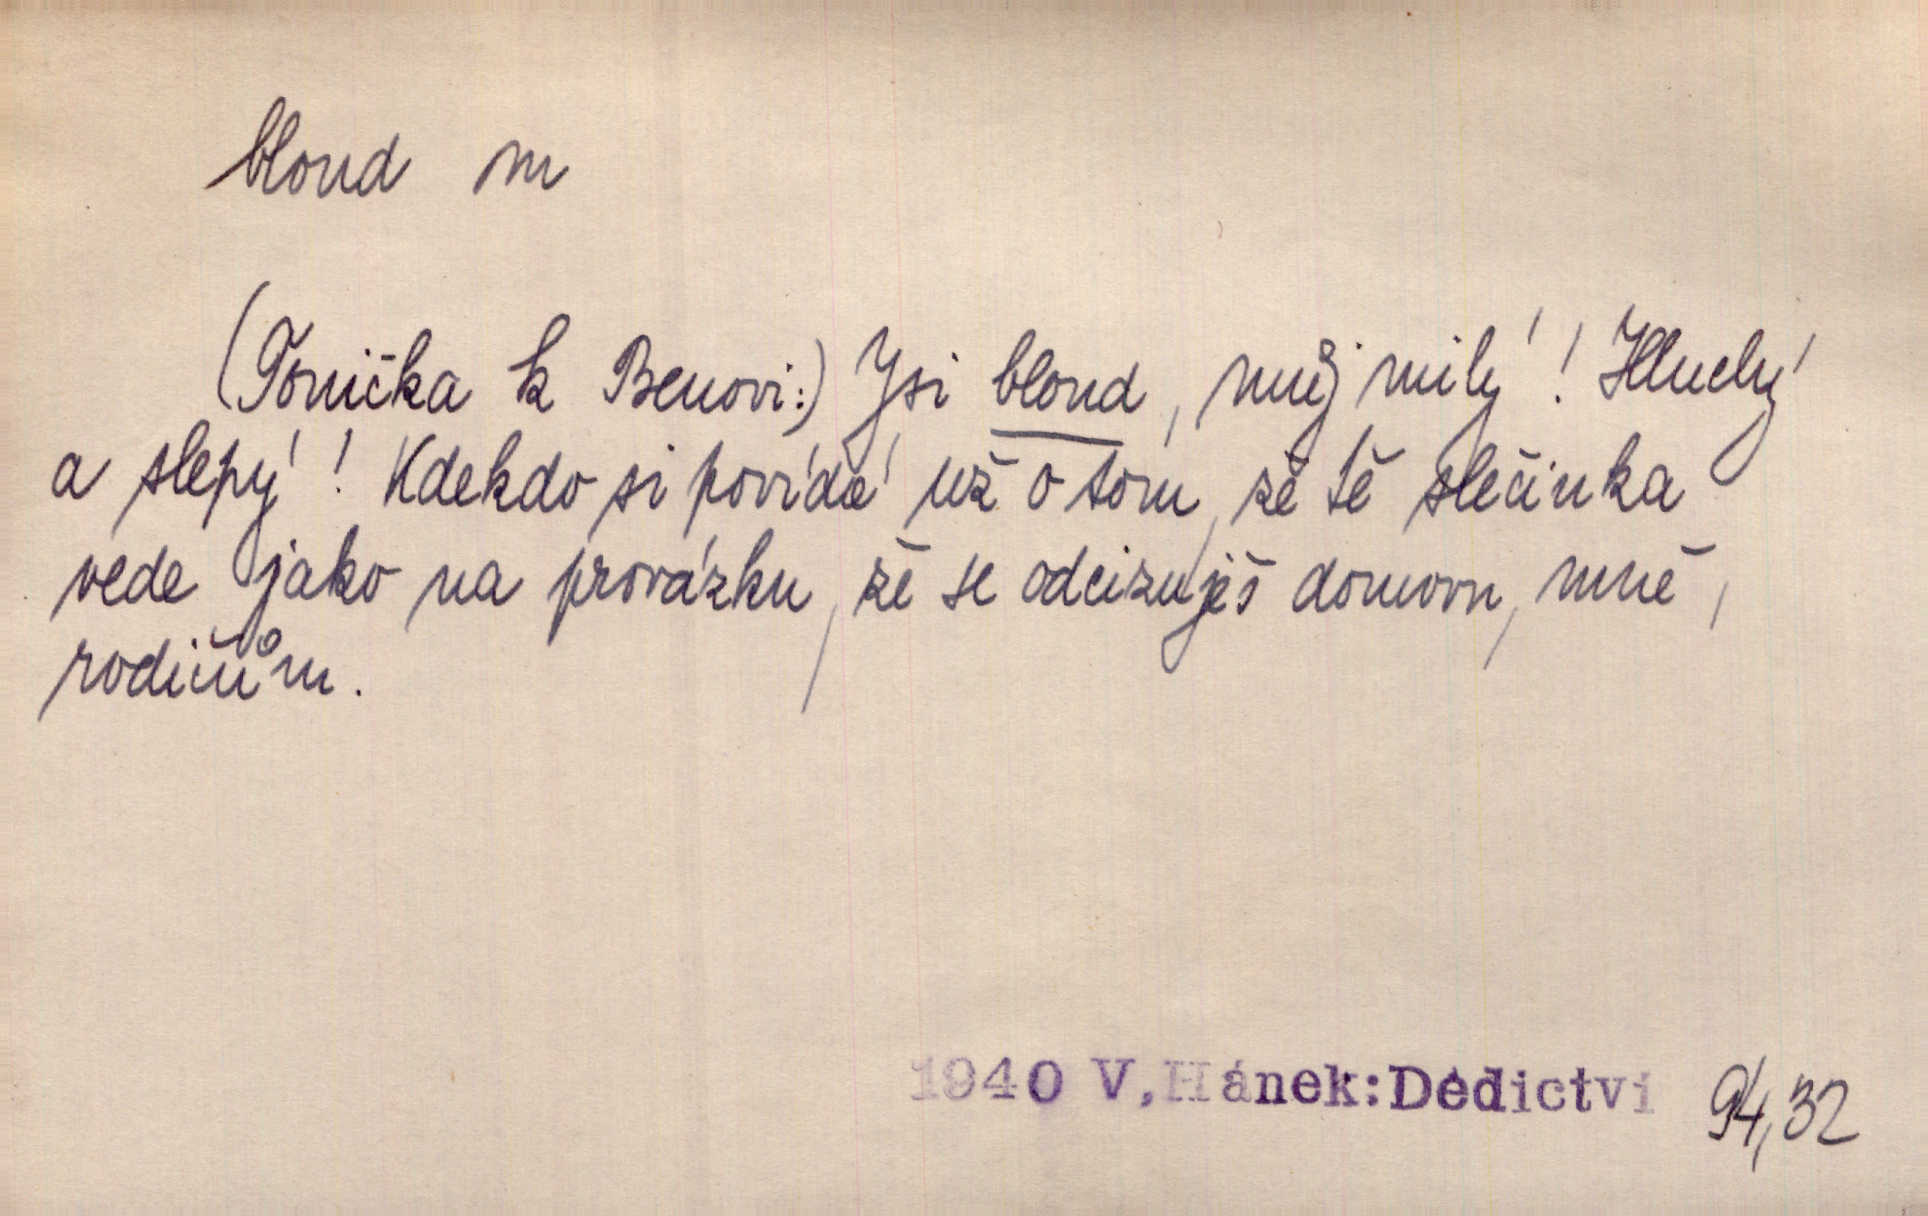 blond m
(Tonička k Benovi:) Jsi blond, můj milý! Hluchý
a slepý! Kdekdo si povídá už o tom, že tě slečinka
vede jako na provázku, že se odcizuješ domovu, mně,
rodičům.
1940 V.Hánek:Dědictví 94,32